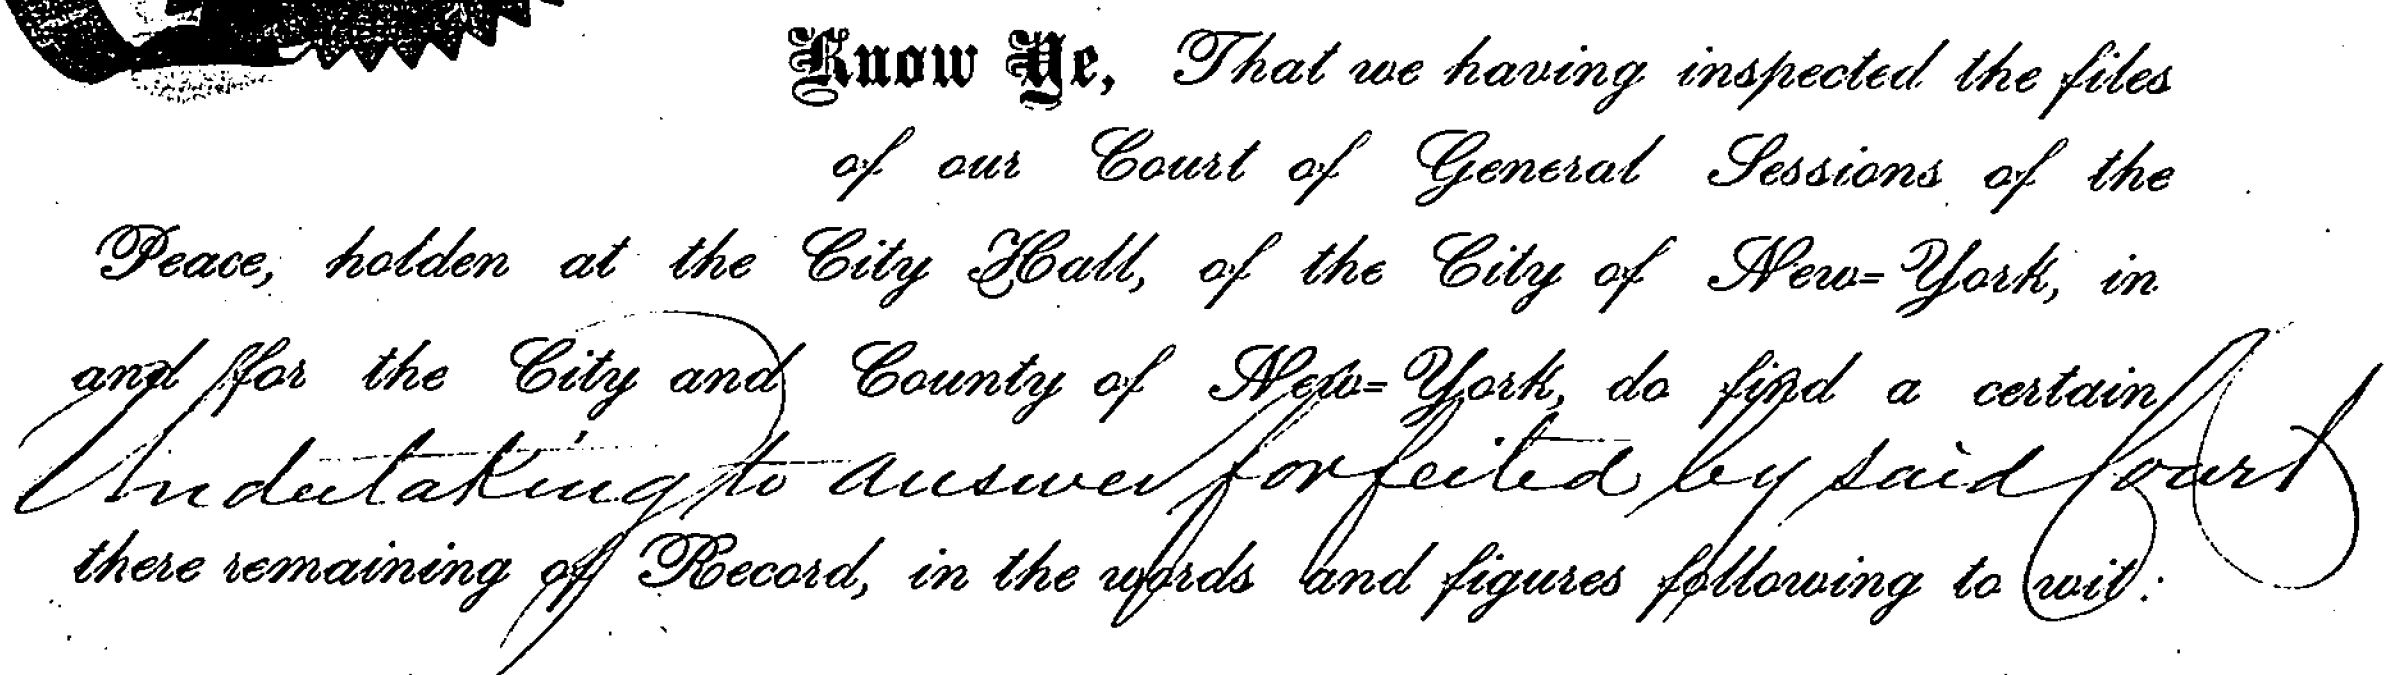 Know Ye, That we having inspected the files
of our Court of General Sessions of the
Peace, holden at the City Hall, of the City of New=York, in
and for the City and County of New=York, do find a certain
Undertaking to answer forfeited by said Court
there remaining of Record, in the words and figures following to wit: